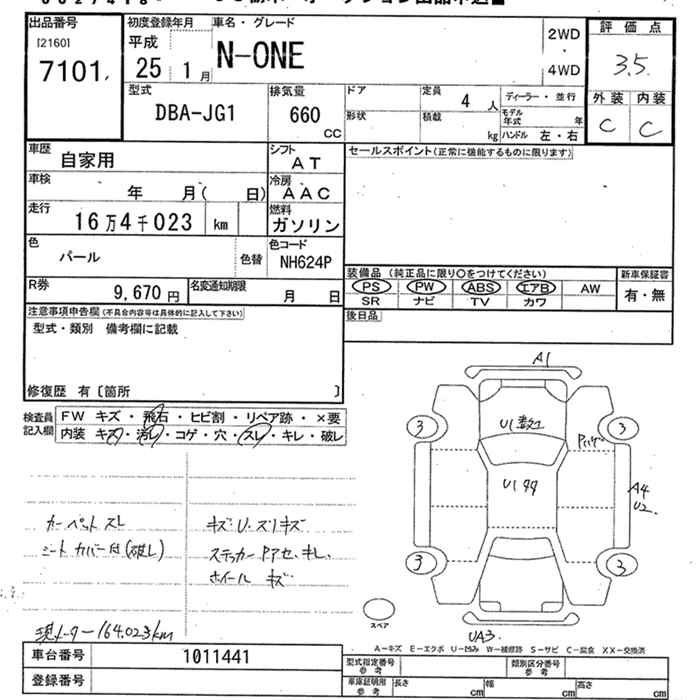 出品番号
[2160]
7101
初度登録年月
平成
25 1月
車名・グレード
N-ONE
2WD
4WD
評価点
3.5
外装 内装
C C
型式
DBA-JG1
排気量
660
CC
ドア
定員
4人
ディーラー・並行
形状
積載
kg
モデル年式
年
ハンドル 左・右
車歴
自家用
シフト
AT
セールスポイント(正常に機能するものに限ります)
車検
年 月( 日)
冷房
AAC
走行
16万4千023 km
燃料
ガソリン
色
パール
色替
色コード
NH624P
装備品 (純正品に限り○をつけてください)
新車保証書
PS PW ABS エアB AW
有・無
SR ナビ TV カワ
R券
9,670円
名変通知期限
月 日
後日品
注意事項申告欄(不具合内容等は具体的に記入して下さい)
型式・類別 備考欄に記載
修復歴 有〔箇所 〕
検査員記入欄
FW キズ・飛石・ヒビ割・リペア跡・×要
内装 キズ・汚レ・コゲ・穴・スレ・キレ・破レ
A1
3 3
U1
U1
A4
U2
3 3
スペア
UA3
カーペットスレ
シートカバー付(破レ)
キズ U.スリキズ
ホイール キズ
現メーター164.023km
A-キズ E-エクボ U-凹み W-補修跡 S-サビ C-腐食 XX-交換済
車台番号
1011441
型式指定番号
参考
類別区分番号
参考
登録番号
車庫証明用
参考
長さ cm 幅 cm 高さ cm